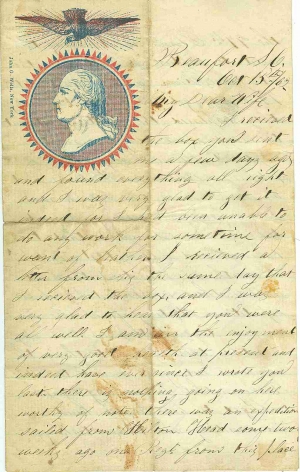 Beaufort S.C.
Oct 15th/62
My Dear Wife
I received
the box you sent
a few days ago
and found every thing all right
and I was very glad to get it
indeed for I have been unable to
do any work for some time for
want of I received a
letter from the same day that
I received the box and I was
very glad to hear that you were
all well I am in the enjoyment
of very good health at present and
indeed have ever since I wrote you
last there is nothing going on here
worthy of note there was an expedition
sailed from Hilton Head some two
weeks ago and from this place